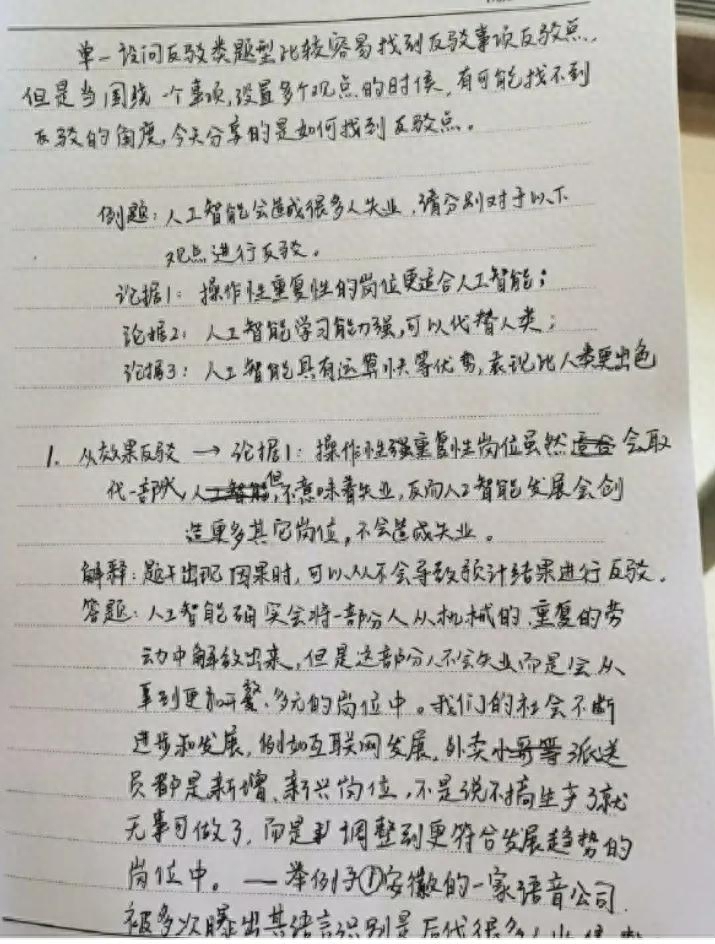 单一设问反驳类题型比较容易找到反驳事项反驳点,
但是当围绕一个事项,设置多个观点的时候,有可能找不到
反驳的角度,今天分享的是如何找到反驳点。
例题:人工智能会造成很多人失业,请分别对于以下
观点进行反驳。
论据1:操作性重复性的岗位更适合人工智能;
论据2:人工智能学习能力强,可以代替人类;
论据3:人工智能具有运算快等优势,表现比人类更出色
1.从效果反驳→论据1:操作性强重复性岗位虽然适合会取
代一部分人工智能,但不意味着失业,反而人工智能发展会创
造更多其它岗位,不会造成失业。
解释:题干出现因果时,可以从不会导致预计结果进行反驳。
答题:人工智能确实会将一部分人从机械的、重复的劳
动中解放出来,但是这部分人不会失业而是会从
事到更加、多元的岗位中。我们的社会不断
进步和发展,例如互联网发展,外卖小哥等派送
员都是新增、新兴岗位,不是说不搞生产了就
无事可做了,而是调整到更符合发展趋势的
岗位中。——举例子①安徽的一家语音公司
被多次曝出其语言识别是后代很多